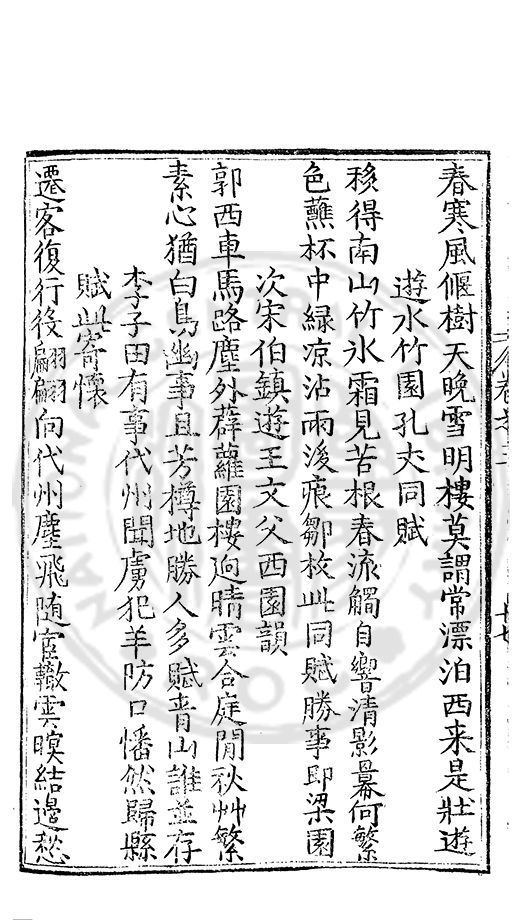 春寒風偃樹天晩雪明樓莫謂常漂泊西来是壯遊
遊水竹園孔夾同賦
移得南山竹氷霜見苦根春流觸自響清影羃何繁
色蘸杯中緑凉沾雨後痕鄒枚此同賦勝事即梁園
次宋伯鎮遊王文父西園韻
郭西車馬路塵外薜蘿園樓逈晴雲合庭閒秋艸繁
素心猶白鳥幽事且芳樽地勝人多賦青山誰並存
李子田有事代州聞虜犯羊防口憣然歸縣
賦此寄懷
遷客復行後翩翩向代州塵飛随宦轍雲暝結邊愁